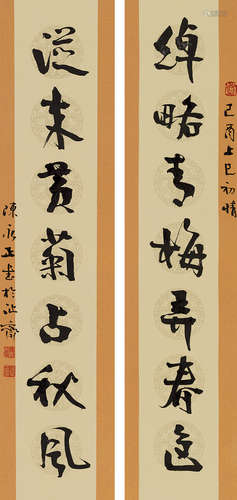 己酉上巳初晴
绰略青梅弄春色
從来黄菊占秋风
陳永正书於沚齋